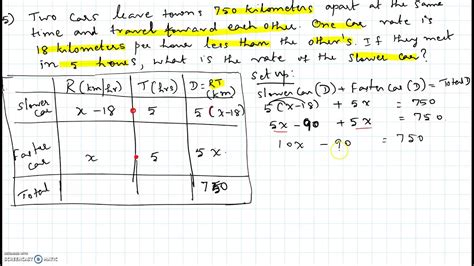 5) Two cars leave towns 750 kilometers apart at the same
time and travel toward each other. One car rate is
18 kilometers per hour less than the other's. If they meet
in 5 hours, what is the rate of the slower car?
Set up:
R (km/hr) T (hrs) D = RT (km)
Slower car x - 18 5 5 (x-18)
Faster car x 5 5x
Total 750
slower car (D) + Faster car (D) = Total D
5 (x-18) + 5x = 750
5x - 90 + 5x = 750
10x - 90 = 750
RECORDED WITH
SCREENCAST-O-MATIC